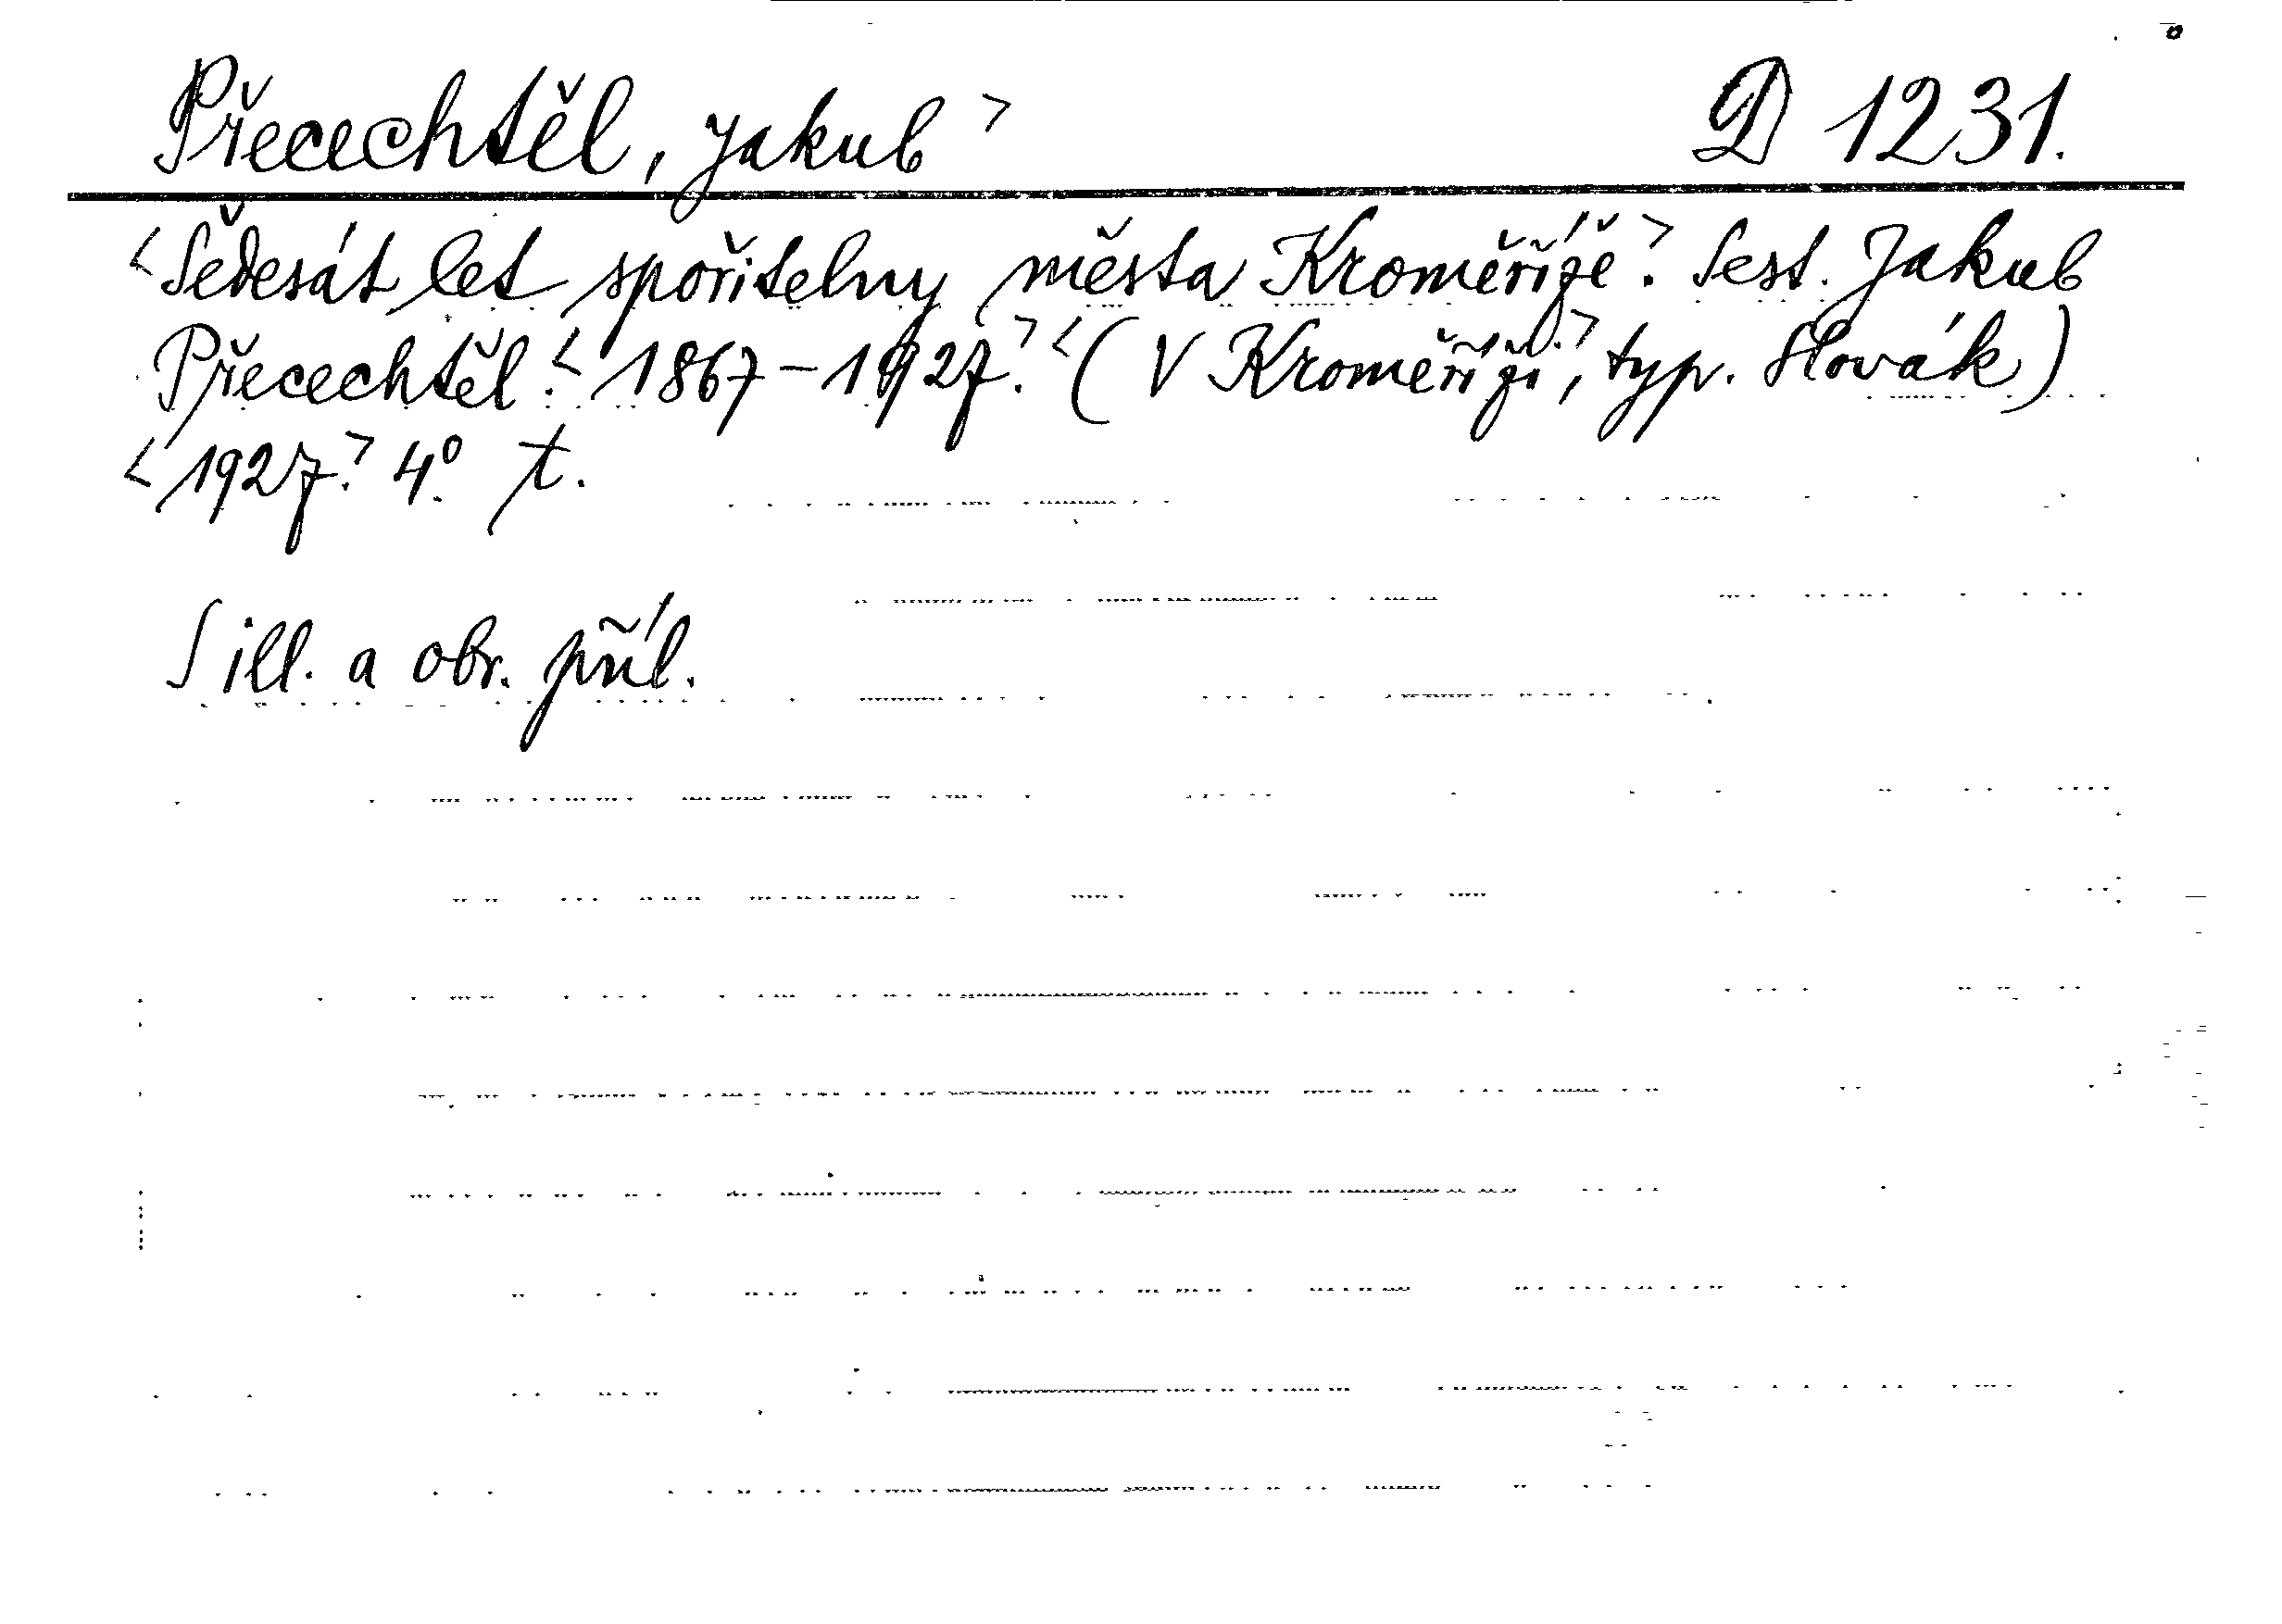 Přecechtěl, Jakub > D 1231.
<Šedesát let spořitelny města Kroměříže.> Sest. Jakub
Přecechtěl. <1867-1927.> <(V Kroměříži,> typ. Slovák)
<1927.> 4°. t.
S ill. a obr. příl.